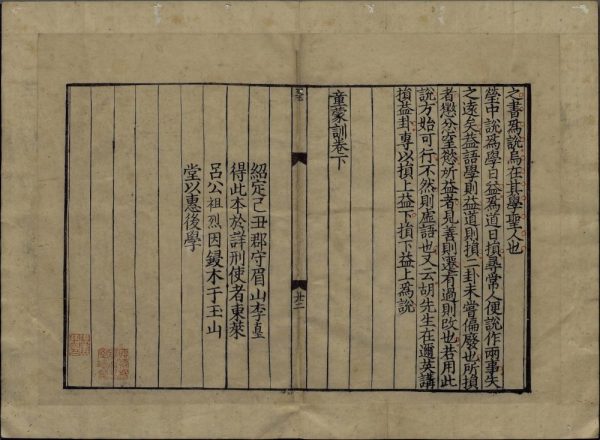 之書爲說烏在其學聖人也
瑩中說爲學日益爲道日損尋常人便說作兩事失
之遠矣蓋語學則益道則損二卦未嘗偏廢也所損
者懲忿窒慾所益者見善則遷有過則改也若用此
說方始可行不然則虛語也又云胡先生在邇英講
損益卦專以損上益下損下益上爲說
童蒙訓卷下
紹定己丑郡守眉山李𡌴
得此本於詳刑使者東萊
呂公祖烈因鋟木于玉山
堂以惠後學